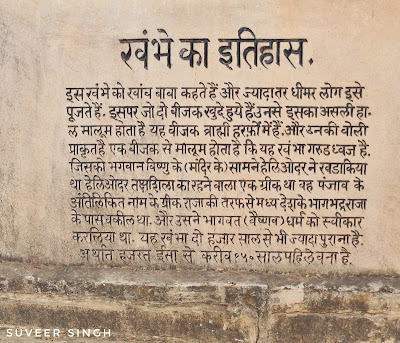 खंभे का इतिहास.
इस खंभे को खांब बाबा कहते हैं और ज्यादातर धीमर लोग इसे
पूजते हैं. इसपर जो दो बीजक खुदे हुये हैं उनसे इसका असली हा-
ल मालूम होता है यह बीजक ब्राह्मी हरफ़ों में हैं. और उनकी बोली
प्राकृत है एक बीजक से मालूम होता है कि यह खंभा गरुडध्वज है.
जिसको भगवान विष्णु के (मंदिर के) सामने हेलिओदर ने खडा किया
था हेलिओदर तक्षशिला का रहने वाला एक ग्रीक था वह पंजाब के
अंतिलिकित नाम के ग्रीक राजा की तरफ से मध्य देश के भागभद्र राजा
के पास वकील था. और उसने भागवत (वैष्णव) धर्म को स्वीकार
करलिया था. यह खंभा दो हजार साल से भी ज्यादा पुराना है.
अर्थात हजरत ईसा से करीब १५० साल पहिले बना है.
SUVEER SINGH